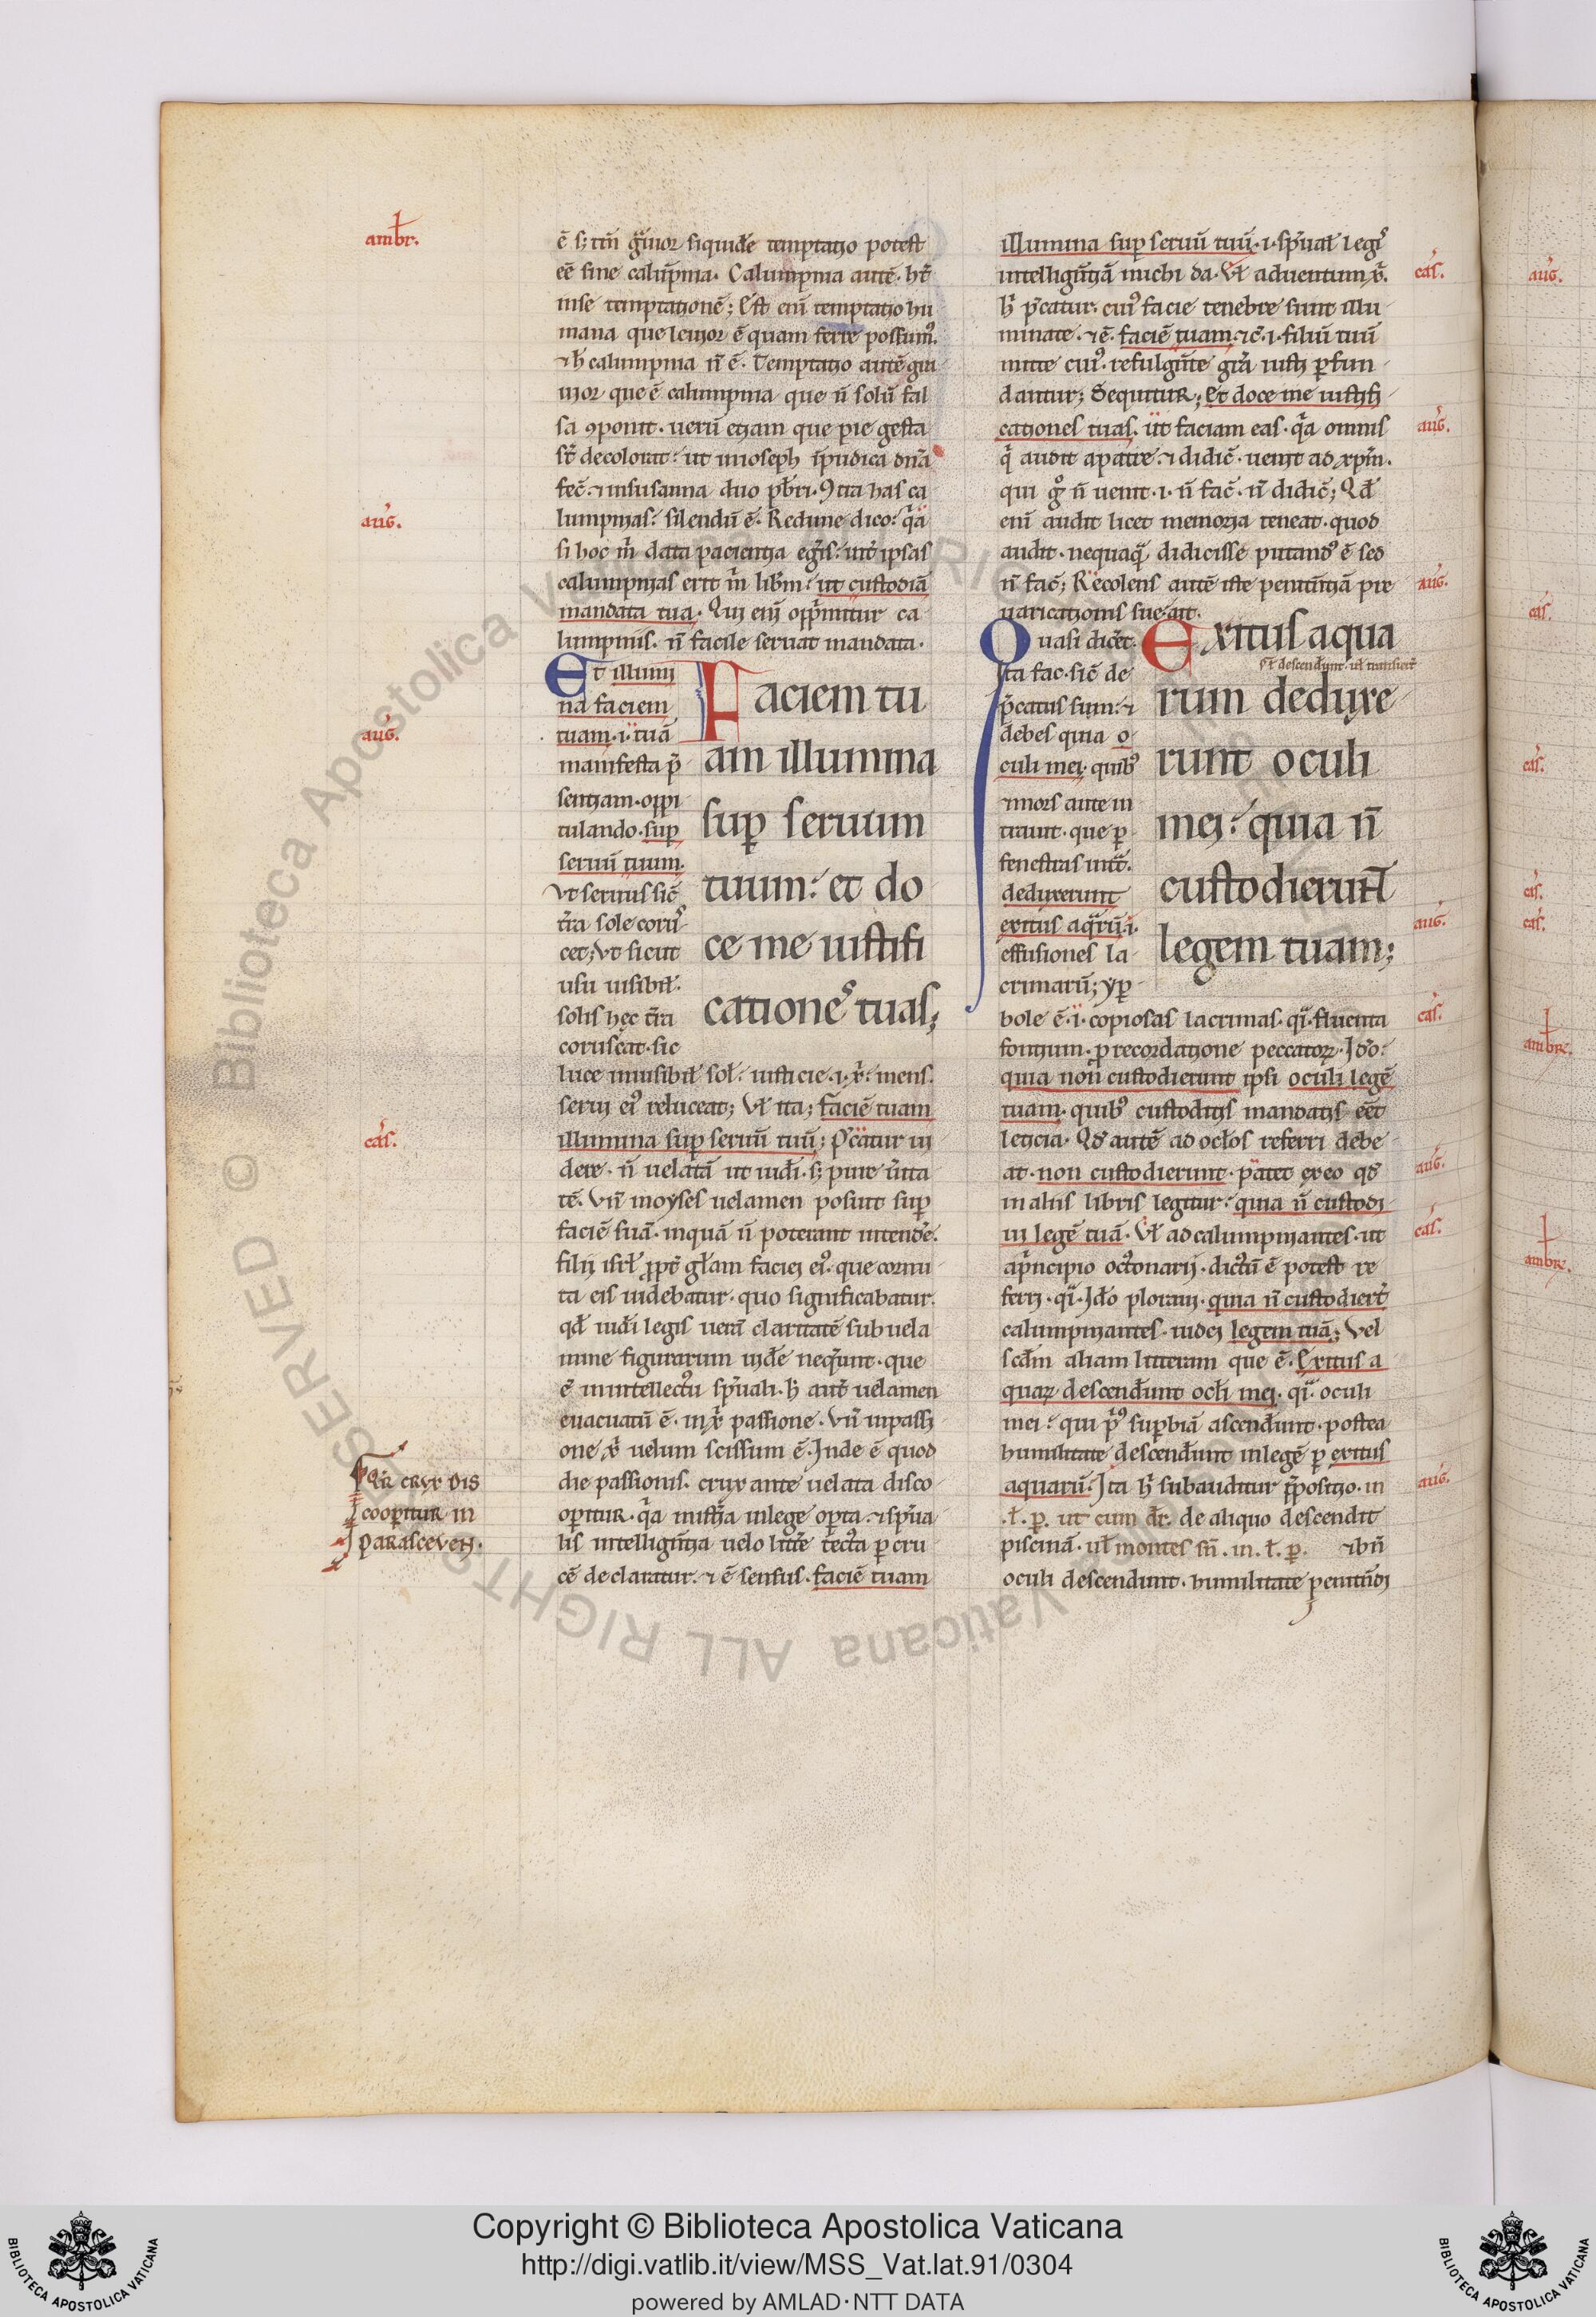 ambr.
ē s; tm̄ g̃uior siquidē temptatio potest
eē sine calūpnia. Calumpnia autē. ht̄
inse temptationē; Est enī temptatio hu
mana que leuior ē quam ferre possum᷒.
⁊ h̄ calumpnia n̄ ē. Temptatio autē gra
uior que ē calumpnia que n̄ solū fal
sa ꝯponit. uerū etiam que pie gesta
st̄ decolorat: ut inioseph īpudica dn̄a
fec̄. ⁊ insusanna duo pb̄ri. ꝯtra has ca
aug̃.
lumpnias: silendū ē. Redime dico: q̃a
si hoc m̄ data pacientia eḡis: int̄ ipsas
calumpnias erit m̄ lib̄m: ut custodiā
mandata tua. Qui eni opp̄mitur ca
lumpniis. n̄ facile seruat mandata.
Et illumi
na faciem
aug̃.
tuam. i. tuā
manifesta p̄
sentiam. opi
tulando. suꝑ
seruū tuum.
vt seruus sic̄
t̄ra sole corus
cet; vt sicut
usu uisibil̄.
solis hec t̄ra
coruscat. sic
Faciem tu
am illumina
suꝑ seruum
tuum: et do
ce me iustifi
catione᷒ tuas;
luce inuisibil̄ sol̄: iusticie. i. x̄: mens.
serui ei᷒ reluceat; Vl̄ ita; faciē tuam
cas̄.
illumina suꝑ seruū tuū; p̄catur ui
dere. n̄ uelatā ut iudi. s; pure ūita
tē. Vn̄ moyses uelamen posuit suꝑ
faciē suā. inquā n̄ poterant intend̄e.
filii isrl̄ ꝓpt̄ gl̄am faciei ei᷒. que cornu
ta eis uidebatur. quo significabatur.
qd̄ iudi legis uerā claritatē sub uela
mine figurarum uid̄e neq̄unt. que
ē inintellectu sp̄uali. h̄ aut̄ uelamen
euacuatū ē. in x̄ passione. Vn̄ inpassi
one x̄ uelum scissum ē. Inde ē quod
Qr̄ crux dis
cooꝑitur in
parasceven.
die passionis. crux ante uelata disco
oꝑitur. q̃a mist̄ia inlege oꝑta. ⁊ sp̄ua
lis intellign̄tia uelo litt̄e tecta ꝑ cru
cē declaratur. ⁊ ē sensus. faciē tuam
illumina suꝑ seruū tuū. i. sp̄ual̄ legis
cas̄.
intellign̄tiā michi da. Vl̄ aduentum x̄.
h̄ p̄catur. cui᷒ facie tenebre sunt illu
minate. ⁊ ē. faciē tuam. ⁊c̄. i. filiū tuū
mitte cui᷒. refulgn̄te gr̄a iusti ꝑfun
dantur; Sequitur; Et doce me iustifi
aug̃.
cationes tuas. ut faciam eas. q̃a omnis
q̄ audit apatre. ⁊ didic̄. uenit ad xpm̄.
qui g̊ n̄ uenit. i. n̄ fac̄. n̄ didic̄; Qd̄
eni audit licet memoria teneat. quod
audit. nequaq̃ didicisse putand᷒ ē sed
aug̃.
n̄ fac̄; Recolens autē iste penitn̄tiā pre
uaricationis sue. ait.
Quasi dic̄et.
Ita fac. sic̄ de
p̄catus sum: ⁊
debes quia o
culi mei. quib᷒
⁊ mors ante in
trauit. que ꝑ
fenestras intt̄.
deduxerunt
aug̃.
exitus aq̃rū. i.
effusiones la
crimarū; yꝑ
Exitus aqua
sl̄ descend̄unt. ul̄ transier̄t
rum deduxe
runt oculi
mei: quia n̄
custodierunt
legem tuam;
cas̄.
bole ē. i. copiosas lacrimas. q̄i. fluenta
fontium. ꝑ recordatione peccatoꝝ. Ido:
quia non custodierunt ipsi oculi legē
tuam. quib᷒ custoditis mandatis eēt
leticia. Qd̄ autē ad oclos referri debe
aug̃.
at. non custodierunt. patet ex eo qd̄
in aliis libris legitur: quia n̄ custodi
cas̄.
ui legē tuā. Vl̄ ad calumpniantes. ut
ap̄ncipio octonarii. dictū ē potest re
feri. q̄i. Ido ploraui. quia n̄ custodier̄t
calumpniantes. iudei legem tuā; Vel
scd̄m aliam litteram que ē. Exitus a
quaꝝ descend̄unt ocl̄i mei. q̄i. oculi
mei: qui p̄᷒ suꝑbiā ascend̄unt. postea
humilitate descend̄unt inlegē ꝑ exitus
aug̃.
aquarū. Ita h̄ subauditur p̄positio. in
.l̄. ꝑ. ut cum dr̄. de aliquo descendit
piscinā. ul̄ montes sn̄. in. l̄. ꝑ. ⁊ bn̄
oculi descendunt. humilitate penitn̄di
aug̃.
cas̄.
cas̄.
cas̄.
cas̄.
ambr̄.
ambr̄.
© Biblioteca Apostolica Vaticana ALL RIGHTS RESERVED
BIBLIOTECA APOSTOLICA VATICANA
Copyright © Biblioteca Apostolica Vaticana
http://digi.vatlib.it/view/MSS_Vat.lat.91/0304
powered by AMLAD·NTT DATA
BIBLIOTECA APOSTOLICA VATICANA